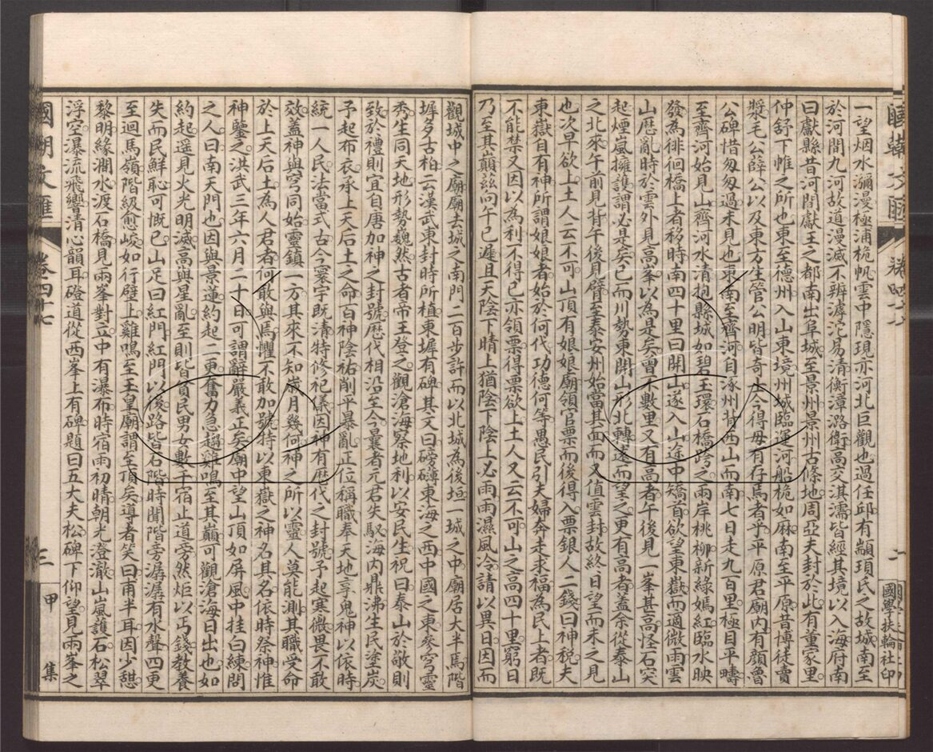 國朝文匯
卷四十七
國學扶輪社印
一望烟水瀰漫極浦桅帆雲中隱現亦河北巨觀也過任邱有顓頊氏之故城南至
於河間九河故道漫滅不辨滹沱易清衡漳潞衛高交淇濡皆經其境以入海府南
曰獻縣昔河間獻王之都南出阜城至景州景州古條地周亞夫封於此有董家里
仲舒下帷之所也東至德州入山東境州城臨運河船桅如麻南至平原昔博徒賣
漿毛公薛公以及東方生管公明皆奇士今得毋有存焉者乎平原君廟內有顏魯
公碑惜匆匆過未見也東南至齊河自涿州背西山而南七日走九百里極目平疇
至齊河始見山齊河水清抱縣城如碧玉環石橋跨之兩岸桃柳新綠嫣紅臨水映
發為徘徊橋上者移時南四十里曰開山遂入山途中矯首欲望東嶽而適微雨雲
山歷亂時於雲外見高峯以為是矣曾不數里又有高者午後見一峯甚高怪石突
起煙嵐擁護謂必是矣已而川勢東開山形北轉遂而望之更有高者蓋余從泰山
之北來午前見背午後見臂至泰安州始當其面而又值雲封故終日望而未之見
也次早欲上土人云不可山頂有娘娘廟領官票而後得入票銀人二錢曰神稅夫
東嶽自有神所謂娘娘者始於何代功德何等愚民引夫婦奔走求福為民上者既
不能禁又因以為利不得已亦領票得票欲上土人又云不可山之高四十里窮日
乃至其巔茲向午已遲且天陰下晴上猶陰下陰上必雨雨濕風冷請以異日因而
觀城中之廟廟去城之南門二百步許而以北城為後垣一城之中廟居大半焉階
墀多古柏云漢武東封時所植東墀有碑其文曰磅礴東海之西中國之東參穹靈
秀生同天地形勢巍然古者帝王登之觀滄海察地利以安民生祝曰泰山於敬則
致於禮則宜自唐加神之封號歷代相沿至今曩者元君失馭海內鼎沸生民塗炭
予起布衣承上天后土之命百神陰祐削平暴亂正位稱職奉天地享鬼神以依時
統一人民法當式古今寰宇既清特修祀儀因神有歷代之封號予起寒微畏不敢
效蓋神與穹同始靈鎮一方其來不知歲月幾何神之所以靈人莫能測其職受命
於上天后土為人君者何敢與焉懼不敢加號特以東嶽之神名其名依時祭神惟
神鑒之洪武三年六月二十日可謂辭嚴義正矣廟中望山頂如屏風中挂白練問
之人曰南天門也因與景蓮約起二更奮力急趨雞鳴至其巔可觀滄海日出也如
約起遙見火光明滅高與星亂至則皆貧民男女數千宿止道旁然炬以丐錢教養
失而民鮮恥可慨已山足曰紅門紅門以後路皆石階時聞階旁潺潺有水聲四更
至迴馬嶺階級愈峻如行壁上雞鳴至玉皇廟謂至頂矣導者笑曰甫半耳因少憩
黎明緣澗水渡石橋見兩峯對立中有瀑布時宿雨初晴朝光澄澈山嵐護石松翠
浮空瀑流飛響清心韻耳磴道從西峯上有碑題曰五大夫松碑下仰望見兩峯之
國朝文匯
卷四十七
三
甲集